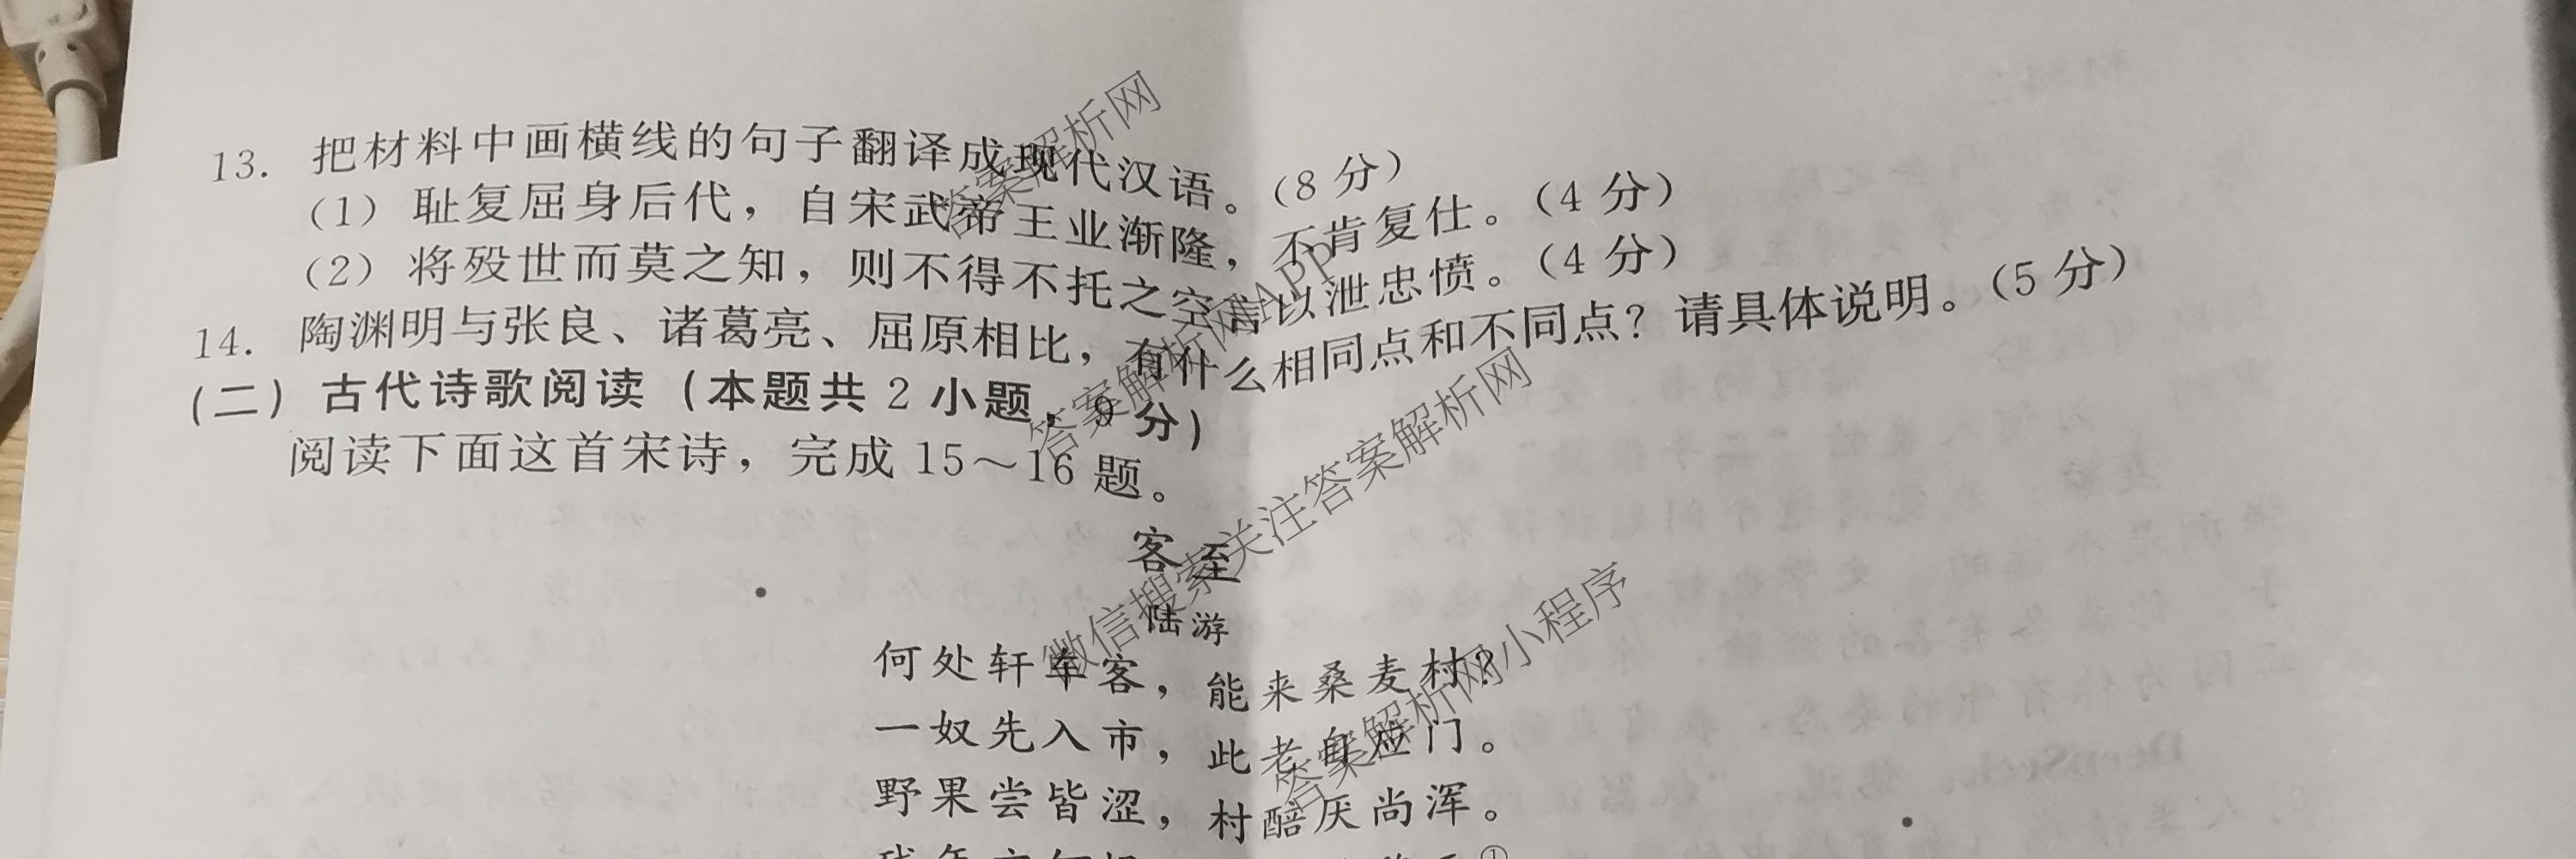 13. 把材料中画横线的句子翻译成现代汉语。(8分)
(1) 耻复屈身后代，自宋武帝王业渐隆，不肯复仕。(4分)
(2) 将殁世而莫之知，则不得不托之空言以泄忠愤。(4分)
14. 陶渊明与张良、诸葛亮、屈原相比，有什么相同点和不同点？请具体说明。(5分)
(二) 古代诗歌阅读 (本题共2小题，9分)
阅读下面这首宋诗，完成15～16题。
客至
陆游
何处轩车客，能来桑麦村？
一奴先入市，此老自应门。
野果尝皆涩，村醅厌尚浑。
答案解析网
答案解析网APP
微信搜索关注答案解析网
答案解析网小程序